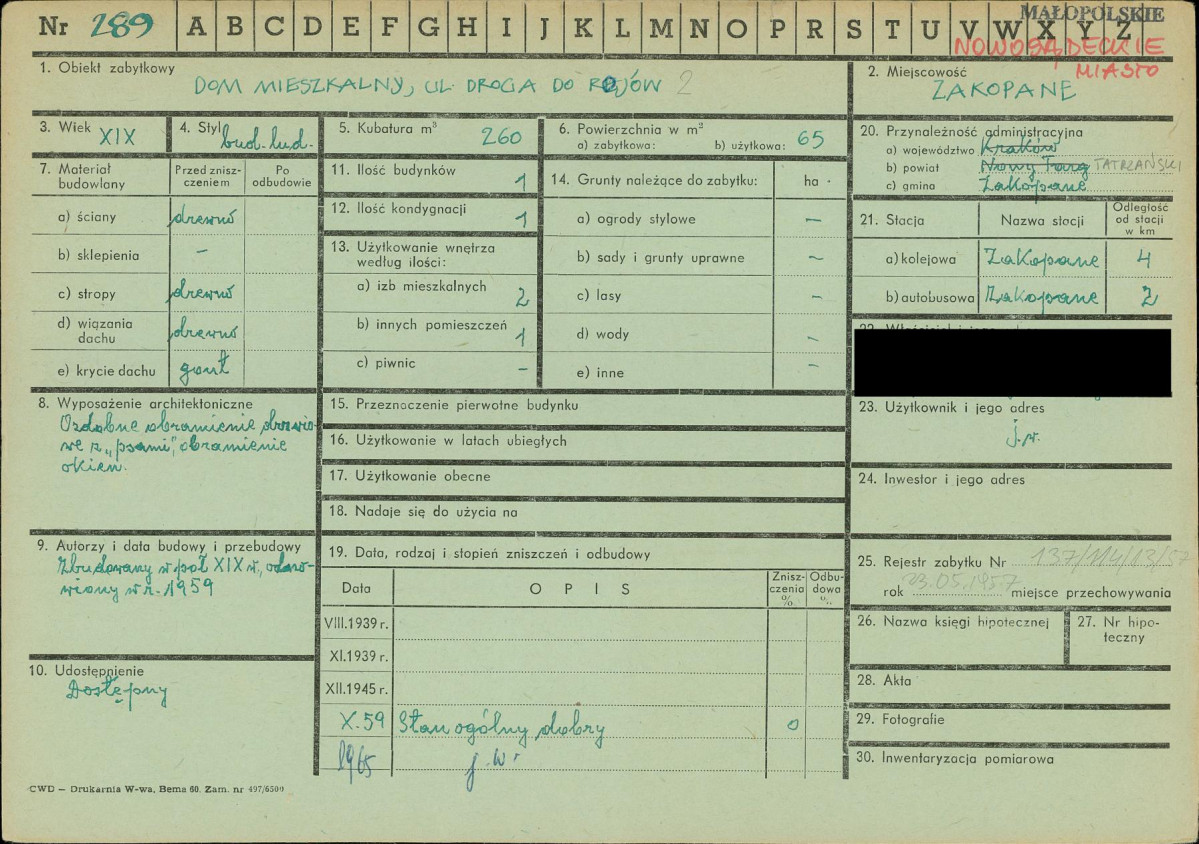 Nr 289 A B C D E F G H I J K L M N O P R S T U V W X Y Z
MAŁOPOLSKIE
NOWOSĄDECKIE
MIASTO
1. Obiekt zabytkowy
DOM MIESZKALNY, UL. DROGA DO ROJÓW 2
2. Miejscowość
ZAKOPANE
3. Wiek
XIX
4. Styl
bud. lud.
5. Kubatura m³
260
6. Powierzchnia w m²
a) zabytkowa: b) użytkowa: 65
20. Przynależność administracyjna
a) województwo Kraków
b) powiat Nowy Targ TATRZAŃSKI
c) gmina Zakopane
7. Materiał budowlany
Przed znisz-
czeniem
Po
odbudowie
a) ściany drewno
b) sklepienia –
c) stropy drewno
d) wiązania
dachu drewno
e) krycie dachu gont
11. Ilość budynków
1
12. Ilość kondygnacji
1
13. Użytkowanie wnętrza
według ilości:
a) izb mieszkalnych 2
b) innych pomieszczeń 1
c) piwnic –
14. Grunty należące do zabytku: ha
a) ogrody stylowe –
b) sady i grunty uprawne –
c) lasy –
d) wody –
e) inne –
21. Stacja Nazwa stacji
Odległość
od stacji
w km
a) kolejowa Zakopane 4
b) autobusowa Zakopane 2
8. Wyposażenie architektoniczne
Ozdobne obramienie drzwio-
we z „psami”, obramienie
okien.
15. Przeznaczenie pierwotne budynku
16. Użytkowanie w latach ubiegłych
17. Użytkowanie obecne
18. Nadaje się do użycia na
23. Użytkownik i jego adres
j.w.
24. Inwestor i jego adres
9. Autorzy i data budowy i przebudowy
Zbudowany w poł XIX w., odno-
wiony w r. 1959
19. Data, rodzaj i stopień zniszczeń i odbudowy
Data OPIS
Znisz-
czenia
%
Odbu-
dowa
%
VIII.1939 r.
XI.1939 r.
XII.1945 r.
X.59 Stan ogólny dobry 0
1965 j.w.
25. Rejestr zabytku Nr 137/114/13/57
rok 23.05.1957 miejsce przechowywania
26. Nazwa księgi hipotecznej
27. Nr hipo-
teczny
10. Udostępnienie
Dostępny
28. Akta
29. Fotografie
30. Inwentaryzacja pomiarowa
CWD – Drukarnia W-wa, Bema 60. Zam. nr 497/6500